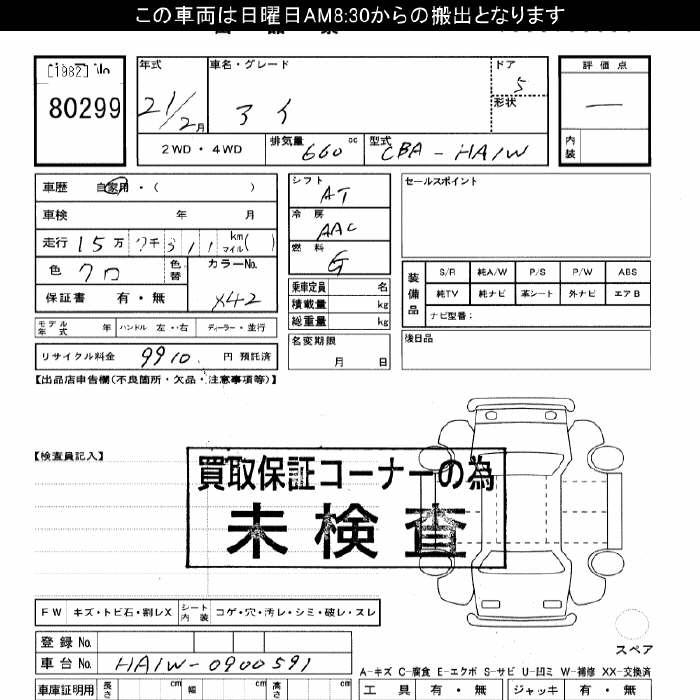 この車両は日曜日AM8:30からの搬出となります
[1982] No
80299
年式 車名・グレード ドア 評価点
21/2月 アイ 5 —
形状
内装
2WD・4WD 排気量 660 cc 型式 CBA-HA1W
車歴 自家用・( )
車検 年 月
走行 15万7千311 km マイル( )
色 クロ 色替 カラーNo. X42
保証書 有・無
モデル年式 年 ハンドル 左・右 ディーラー・並行
リサイクル料金 9910 円 預託済
シフト AT
冷房 AAC
燃料 G
乗車定員 名
積載量 kg
総重量 kg
名変期限 月 日
セールスポイント
装備品 S/R 純A/W P/S P/W ABS
純TV 純ナビ 革シート 外ナビ エアB
ナビ型番:
後日品
【出品店申告欄(不良箇所・欠品・注意事項等)】
【検査員記入】
買取保証コーナーの為
未検査
FW キズ・トビ石・割レX シート内装 コゲ・穴・汚レ・シミ・破レ・スレ
登録No.
車台No. HA1W-0900591
スペア
A-キズ C-腐食 E-エクボ S-サビ U-凹ミ W-補修 XX-交換済
車庫証明用 長さ cm 幅 cm 高さ cm
工具 有・無 ジャッキ 有・無